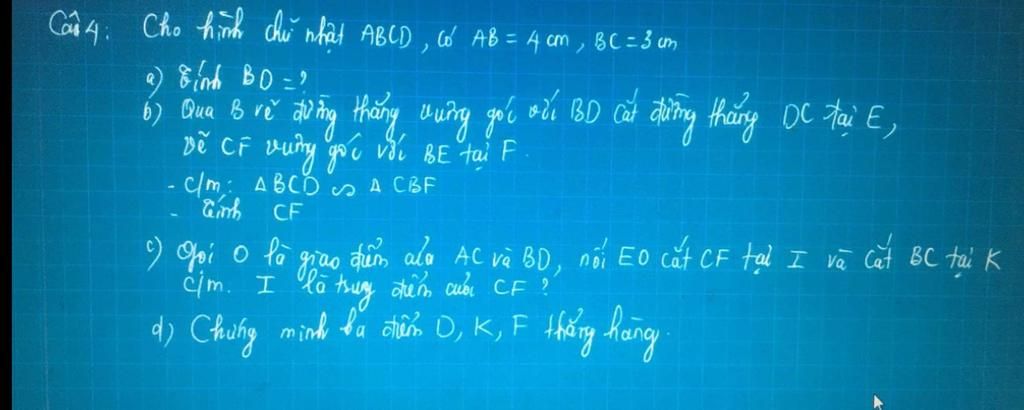 Câu 4: Cho hình chữ nhật ABCD, có AB = 4 cm, BC = 3 cm
a) Tính BD = ?
b) Qua B vẽ đường thẳng vuông góc với BD cắt đường thẳng DC tại E,
Vẽ CF vuông góc với BE tại F.
- C/m: Δ BCD ∽ Δ CBF
- Tính CF
c) Gọi O là giao điểm của AC và BD, nối EO cắt CF tại I và cắt BC tại K
C/m. I là trung điểm của CF ?
d) Chứng minh ba điểm D, K, F thẳng hàng.